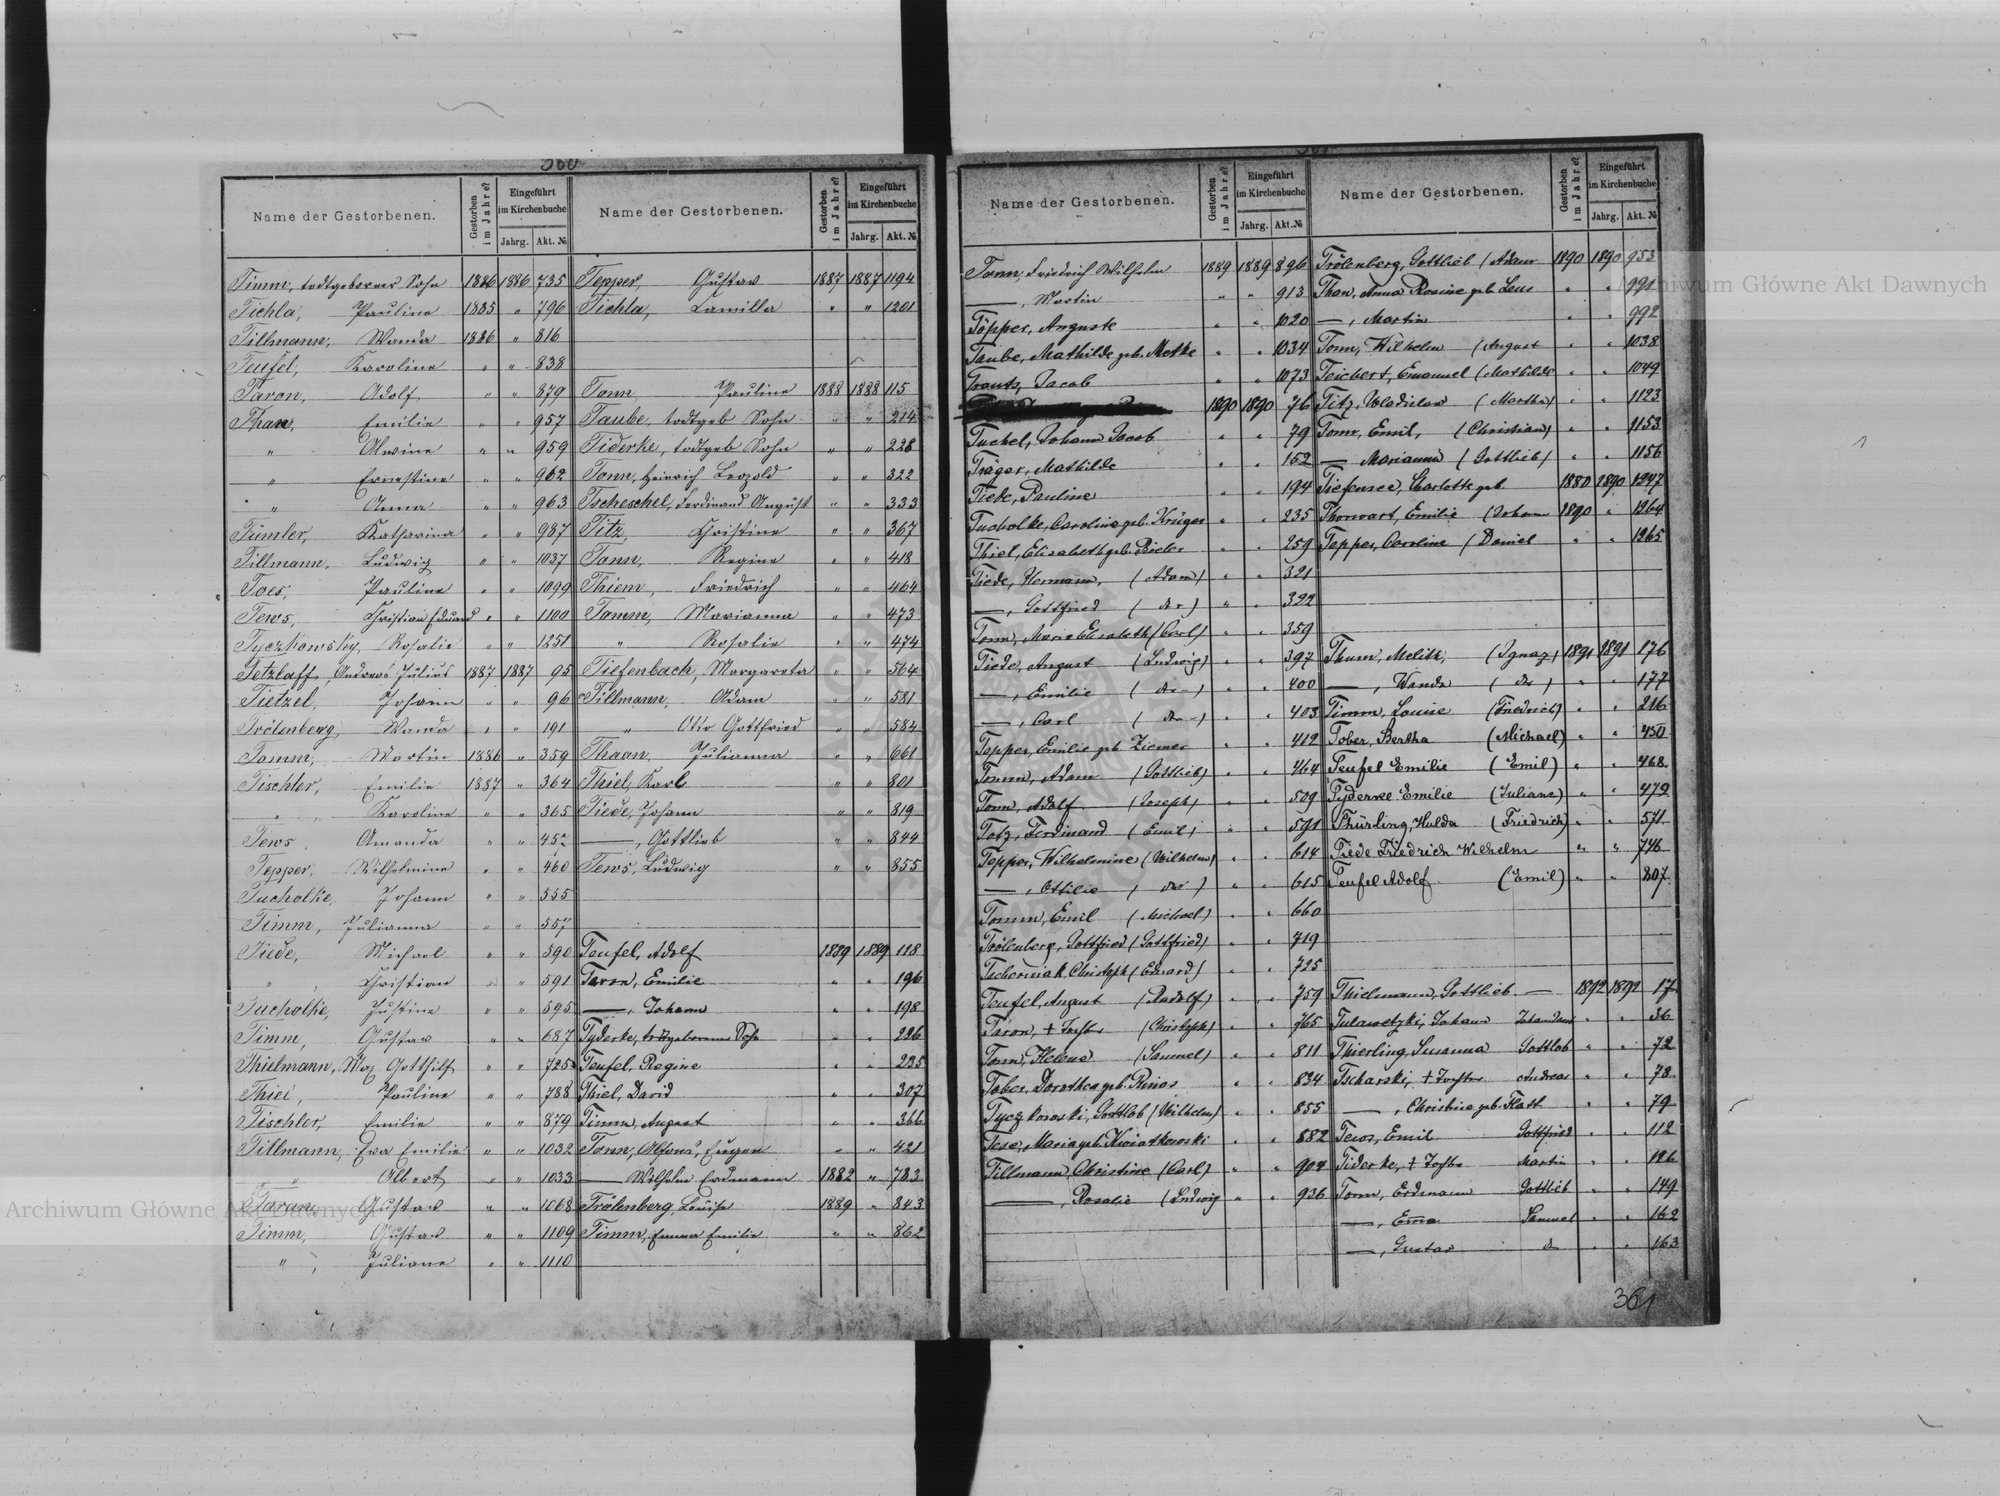 360
Name der Gestorbenen. Gestorben im Jahre? Eingeführt im Kirchenbuche Jahrg. Akt. №
Timm, todtgeborner Sohn 1886 1886 735
Tichla, Pauline 1885 " 796
Tillmann, Wanda 1886 " 816
Teufel, Karoline " " 838
Taron, Adolf " " 879
Than, Emilie " " 957
" Alwine " " 959
" Ernestine " " 962
" Anna " " 963
Tümler, Katharina " " 987
Tillmann, Ludwig " " 1037
Toes, Pauline " " 1099
Tews, Christian Eduard " " 1100
Tyczkowsky, Rosalie " " 1251
Tetzlaff, Andreas Julius 1887 1887 95
Tietzel, Johann " " 96
Trölenberg, Wanda " " 191
Tomm, Martin 1886 " 359
Tischler, Emilie 1887 " 364
" Karoline " " 365
Tews Amanda " "
Tepper, Wilhelmine " " 460
Tucholke, Johann " " 555
Timm, Julianna " " 557
Tiede, Michael " " 590
" Christian " " 591
Tucholke, Justine " " 595
Timm, Gustav " " 687
Thielmann, Gotthilf " " 725
Thiel, Pauline " " 788
Tischler, Emilie " " 879
Tillmann, Eva Emilie " " 1032
" Albert " " 1033
Taran, Gustav " " 1068
Timm, Gustav " " 1109
" Juliane " " 1110
Name der Gestorbenen. Gestorben im Jahre? Eingeführt im Kirchenbuche Jahrg. Akt. №
Tepper, Gustav 1887 1887 1194
Tichla, Camilla " " 1201
Tonn, Pauline 1888 1888 115
Taube, todtgeb Sohn " " 214
Tiderke, todtgeb Sohn " " 228
Tonn, Heinrich Leopold " " 322
Tscheschel, Ferdinand August " " 333
Titz, Christine " " 367
Tonn, Regine " " 418
Thiem, Friedrich " " 464
Tomm, Marianna " " 473
" Rosalie " " 474
Tiefenbach, Margareta " " 564
Tillmann, Adam " " 581
" Otto Gottfried " " 584
Thaan, Julianna " " 661
Thiel, Karl " " 801
Tiede, Johann " " 819
—, Gottlieb " " 844
Tews, Ludwig " " 855
Teufel, Adolf 1889 1889 118
Taron, Emilie " " 196
—, Johann " " 198
Tyderke, todtgeborener Sohn " " 226
Teufel, Regine " " 235
Thiel, David " " 307
Timm, August " " 366
Tonn, Alfons, Eugen " " 421
— Wilhelm Erdmann 1882 " 783
Trölenberg, Louise 1889 " 843
Timm, Emma Emilie " " 862
Name der Gestorbenen. Gestorben im Jahre? Eingeführt im Kirchenbuche Jahrg. Akt. №
Tonn, Friedrich Wilhelm 1889 1889 896
—, Martin " " 913
Töpper, Auguste " " 1020
Taube, Mathilde geb. Metke " " 1034
Jacob " " 1073
1890 1890 76
Tuchel, Johann Jacob " " 79
Träger, Mathilde " " 152
Tiede, Pauline " " 194
Tucholke, Caroline geb. Krüger " " 235
Thiel, Elisabeth geb. Bieler " " 259
Tiede, Hermann, (Adam) " " 321
—, Gottfried (do) " " 322
Tonn, Marie Elisabeth (Carl) " " 359
Tiede, August (Ludwig) " " 397
—, Emilie (do) " " 400
—, Carl (do) " " 403
Tepper, Emilie geb Ziemer " " 412
Tomm, Adam (Gottlieb) " " 464
Tonn, Adolf (Joseph) " " 509
Totz, Ferdinand (Emil) " " 591
Tepper, Wilhelmine (Wilhelm) " " 614
—, Ottilie (do) " " 615
Tomm, Emil (Michael) " " 660
Trölenberg, Gottfried (Gottfried) " " 719
Tscherniak Christoph (Eduard) " " 725
Teufel, August (Rudolf) " " 759
Taron, + Tochter (Christoph) " " 765
Tonn, Helene (Samuel) " " 811
Tober, Dorothea geb. " " 834
Tyczkowski, Gottlob (Wilhelm) " " 855
Maria geb. Kwiatkowski " " 882
Tillmann, Christine (Carl) " " 904
—, Rosalie (Ludwig " " 936
Name der Gestorbenen. Gestorben im Jahre? Eingeführt im Kirchenbuche Jahrg. Akt. №
Trölenberg, Gottlieb (Adam 1890 1890 953
Than, Anna Rosine geb. " " 991
—, Martin " " 992
Tonn, Wilhelm (August " " 1038
Teichert, Emanuel (Mathilde " " 1049
Titz, Wladislaw (Martha) " " 1123
Tonn, Emil, (Christian) " " 1153
— Marianna (Gottlieb) " " 1156
Tiefensee, Charlotte geb. 1880 1890 1247
Thorwart, Emilie (Johann 1890 " 1264
Tepper, Caroline (Daniel " " 1265
Thum, Melith, (Ignaz) 1891 1891 176
—, Wanda (do) " " 177
Timm, Louise (Friedrich) " " 216
Tober, Bertha (Michael) " " 450
Teufel Emilie (Emil) " " 468
Tyderke Emilie (Juliane) " " 479
Thürling, Hulda (Friedrich) " " 571
Tiede Friedrich Wilhelm " " 746
Teufel Adolf (Emil) " " 807
Thielmann, Gottlieb — 1892 1892 17
Johann " " 36
Thierling, Susanna Gottlob " " 72
Tscharski, + Tochter Andreas " " 78
—, Christine geb. Flatt " " 79
Tews, Emil Gottfried " " 112
Tiderke, + Tochter Martin " " 126
Tonn, Erdmann Gottlieb " " 149
—, Ema Samuel " " 162
—, Gustav do " " 163
361
Archiwum Główne Akt Dawnych
Archiwum Główne Akt Dawnych